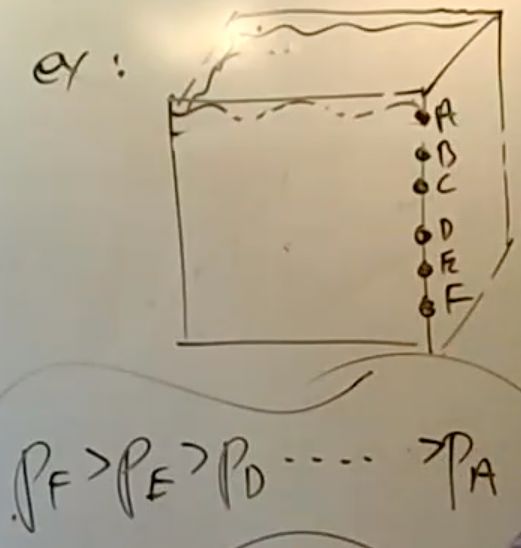 ex:
A
B
C
D
E
F
P_F > P_E > P_D ---- > P_A